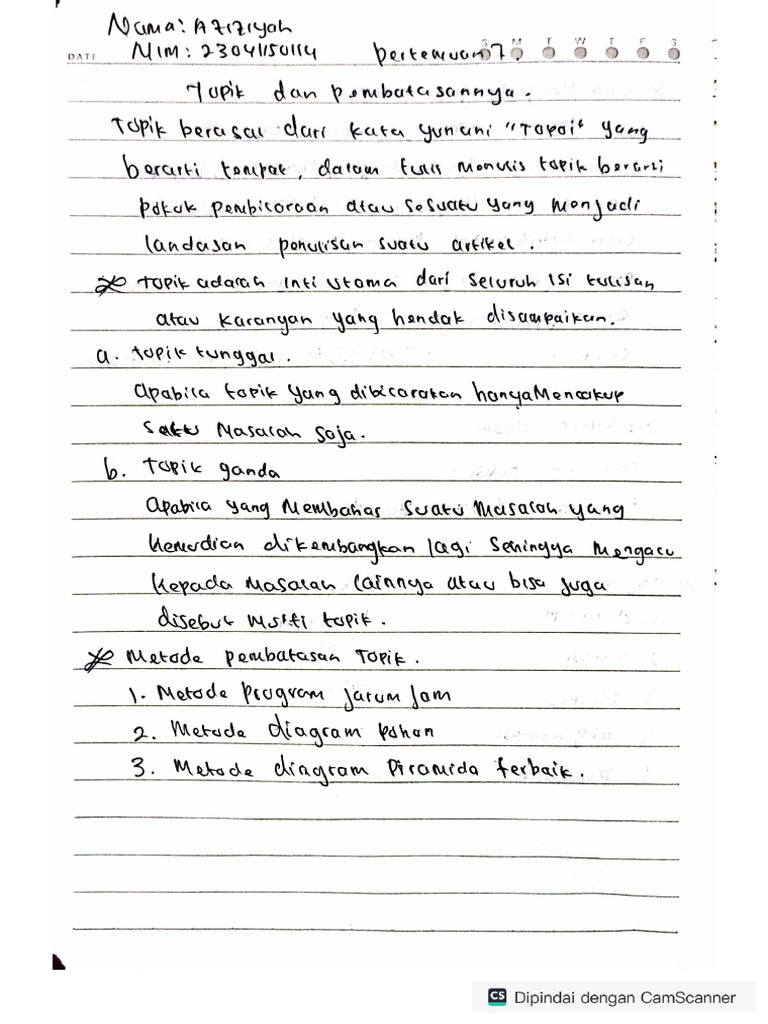 Nama: Aziziyah
DATE NIM: 23041150114 pertemuan 7. S M T W T F S
Topik dan pembatasannya.
Topik berasal dari kata yunani "Topoi" yang
berarti tempat, dalam tulis menulis topik berarti
pokok pembicaraan atau sesuatu yang menjadi
landasan penulisan suatu artikel.
* Topik adalah inti utama dari seluruh isi tulisan
atau karangan yang hendak disampaikan.
a. topik tunggal.
Apabila topik yang dibicarakan hanya Mencakup
satu Masalah saja.
b. Topik ganda
Apabila yang Membahas suatu Masalah yang
kemudian dikembangkan lagi sehingga Mengacu
kepada Masalah lainnya atau bisa juga
disebut multi topik.
* Metode pembatasan Topik.
1. Metode program jarum jam
2. Metode diagram pohon
3. Metode diagram Piramida terbaik.
CS Dipindai dengan CamScanner